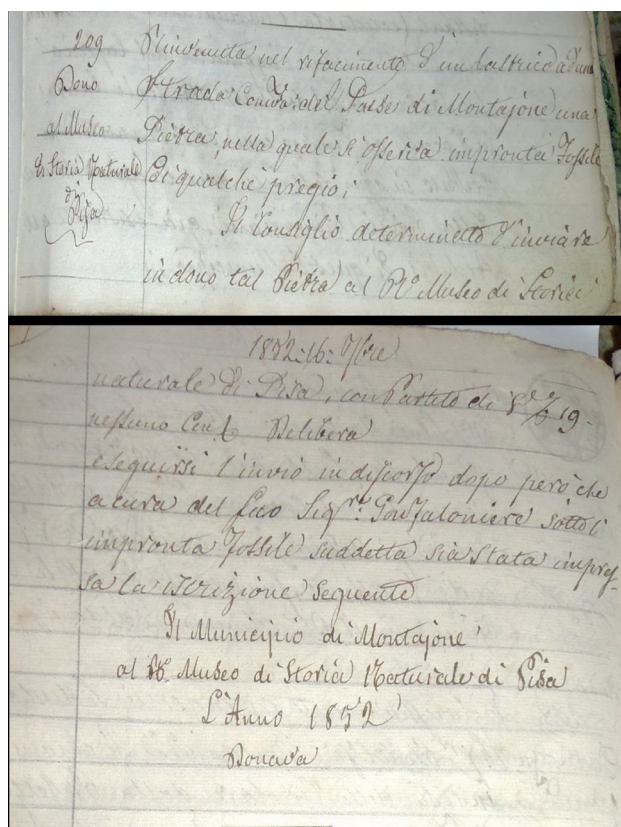 209
Dono
al Museo
di Storia Naturale
di
Pisa
Rinvenuta nel rifacimento d'un lastrico ad una
Strada Comva: del Paese di Montajone una
Pietra, nella quale si osserva impronta Fossile
di qualche pregio;
Il Consiglio determinato d'inviare
in dono tal Pietra al Rº Museo di Storia
1852: 16: 7bre
naturale di Pisa, con Partito di
nessuno Delibera
eseguirsi l'invio in discorso dopo però che
a cura del suo Sigr. Gonfaloniere sotto l'
impronta Fossile suddetta sia stata impres-
sa la iscrizione seguente
Il Municipio di Montajone
al Rº Museo di Storia Naturale di Pisa
L'Anno 1852
Donava